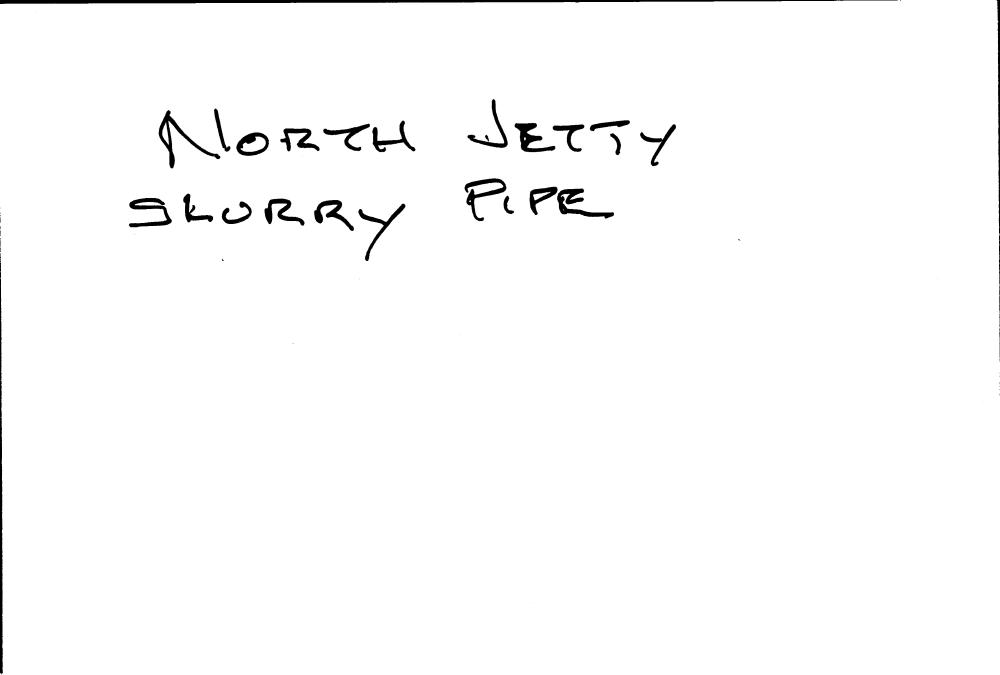 NORTH JETTY
SLURRY PIPE